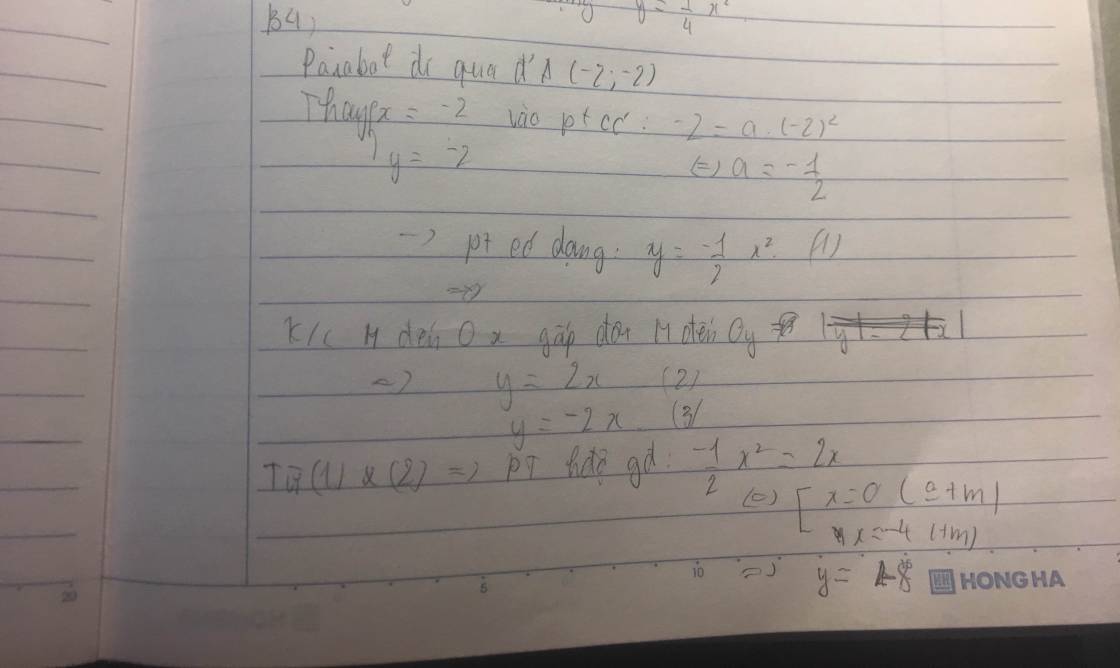 y = 1/4 x²
B4,
Parabol đi qua đ' A (-2; -2)
Thay x = -2 vào pt có: -2 = a.(-2)²
y = -2 (=) a = -1/2
-> pt có dạng: y = -1/2 x². (1)
=>
K/c M đến Ox gấp đôi M đến Oy |y| = 2|x|
=> y = 2x (2)
y = -2x (3)
Từ (1) & (2) => PT hđộ gđ: -1/2 x² = 2x
(=) [ x = 0 (ktm)
x = -4 (tm)
=> y = -8
20 5 10 15 HONG HA